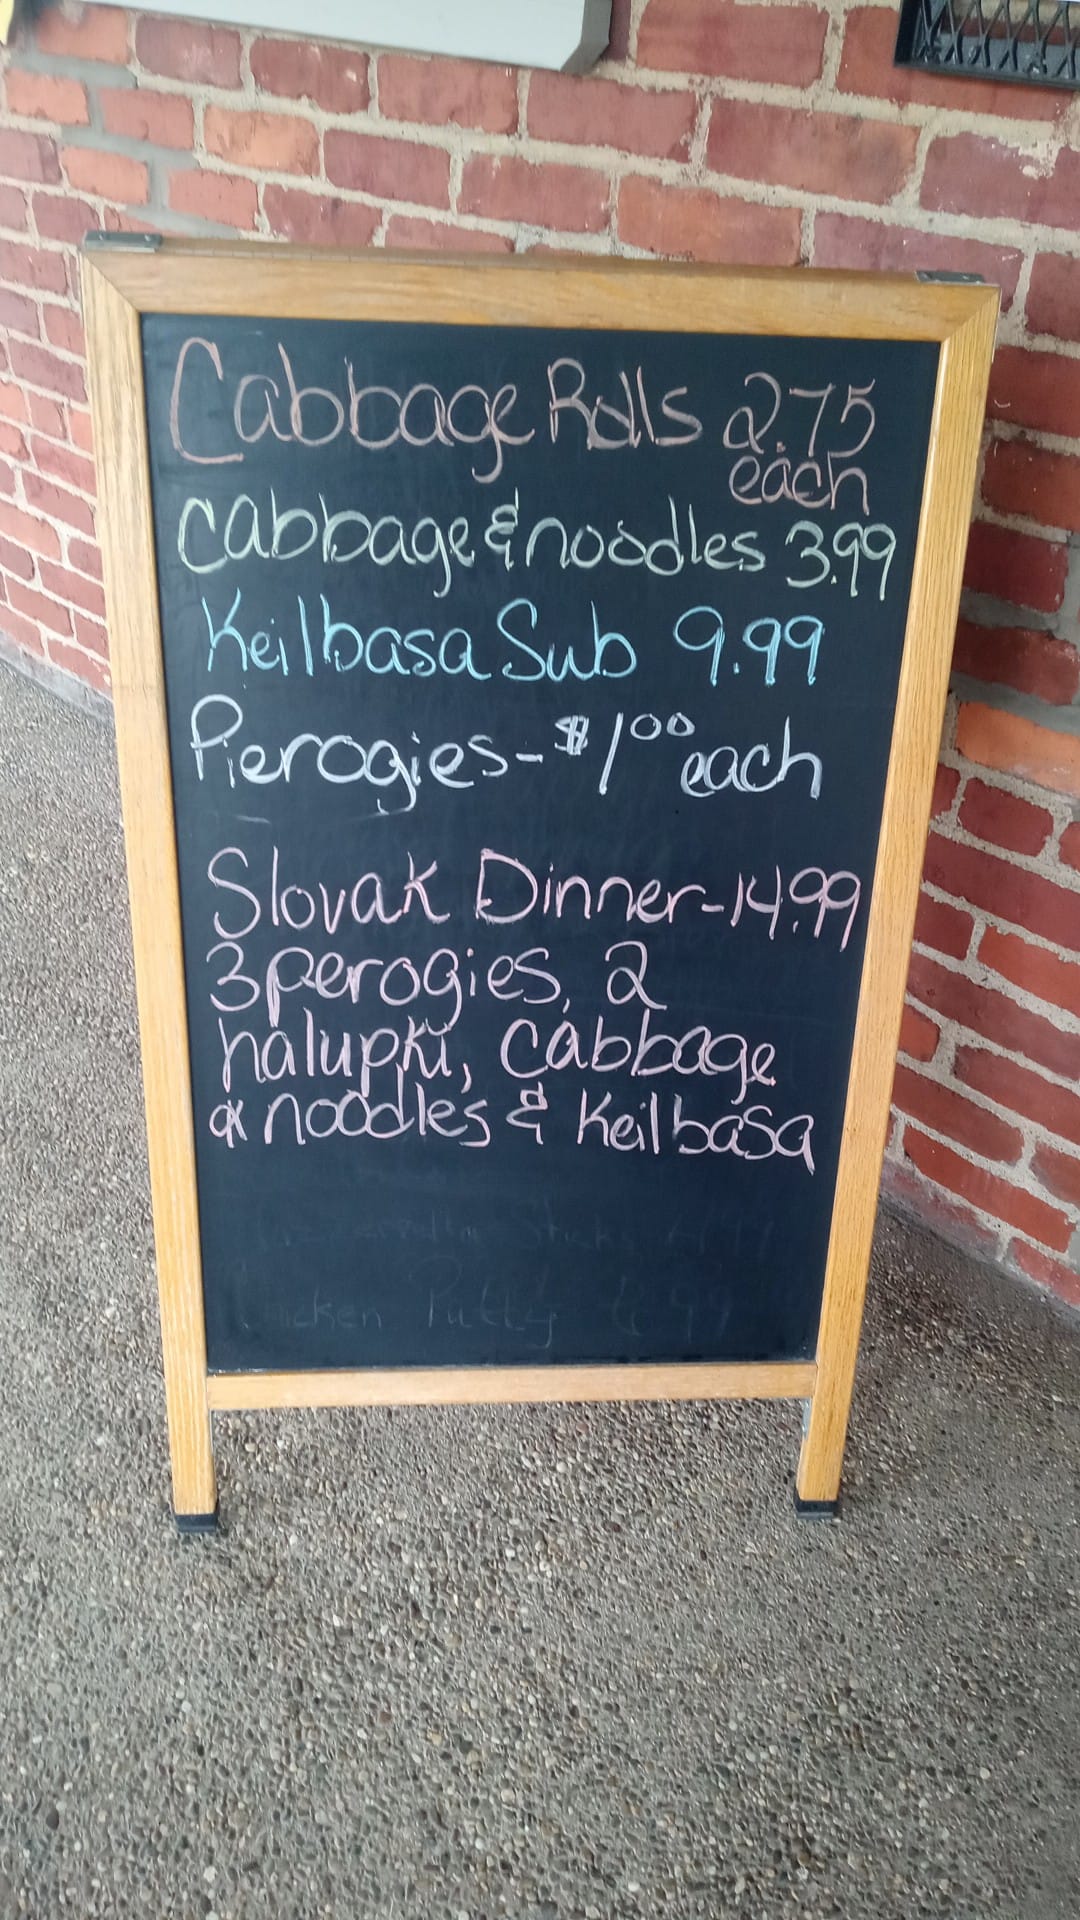 Cabbage Rolls 2.75
each
Cabbage & noodles 3.99
Keilbasa Sub 9.99
Pierogies - $1.00 each
Slovak Dinner - 14.99
3 perogies, 2
halupki, cabbage
& noodles & Keilbasa
Sticks
Chicken Putty 6.99